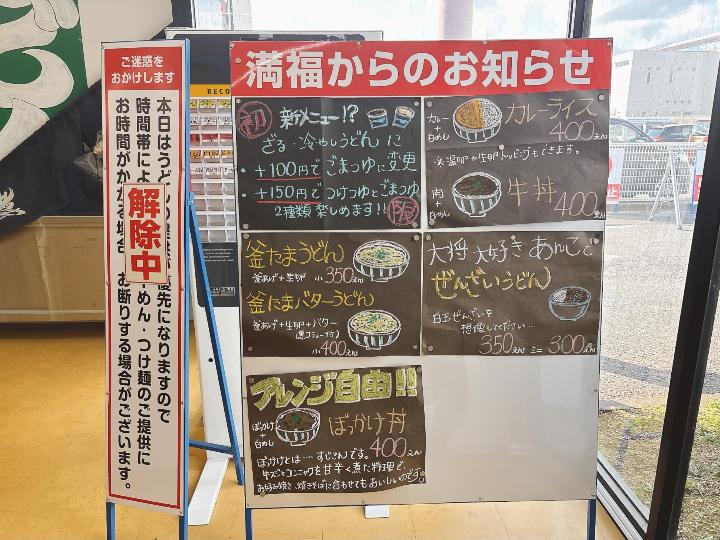 ご迷惑を
おかけします
本日はうどん
優先になりますので
時間帯によ
めん・つけ麺のご提供に
お時間がかかる場合
お断りする場合がございます。
解除中
RECO
満福からのお知らせ
初 新メニュー!?
ざる・冷やしうどんに
・+100円でごまつゆに変更
・+150円でつけつゆとごまつゆ
2種類楽しめます!!
カレーライス
カレー
+
白めし
400えん
※温卵や生卵トッピングもできます。
牛丼
肉
+
白めし
400えん
釜たまうどん
釜あげ+生卵 小350えん
釜たまバターうどん
釜あげ+生卵+バター
小400えん
大将大好きあんこで
ぜんざいうどん
白玉ぜんざいを
想像してください…
350えん ミニ 300えん
アレンジ自由!!
ぼっかけ
+
白めし
ぼっかけ丼
400えん
ぼっかけとは…すじこんです。
牛スジとコンニャクを甘辛く煮た料理で、
お好み焼き、焼きそばに合わせてもおいしいのです。